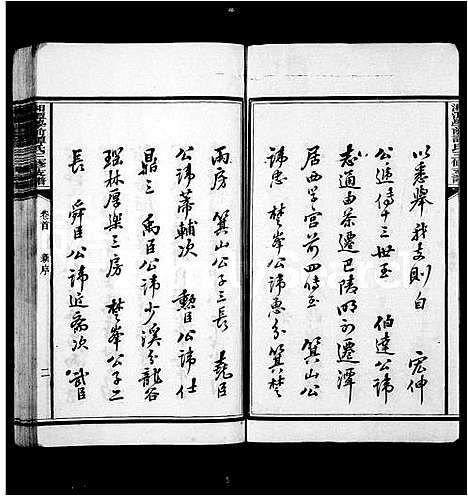 以悉舉我支則自 宏仲
公遞傳十三世至 伯達公諱
志通由茶遷巴陵明初遷潭
居西學宮前四傳至 箕山公
諱忠 楚峯公諱惠分箕楚
兩房 箕山公子三長 堯臣
公諱蒂輔次 勳臣公諱仕
鼎三 禹臣公諱少溪分龍谷
瑶林厚樂三房 楚峯公子二
長 舜臣公諱廷裔次 武臣
卷首 新序 二